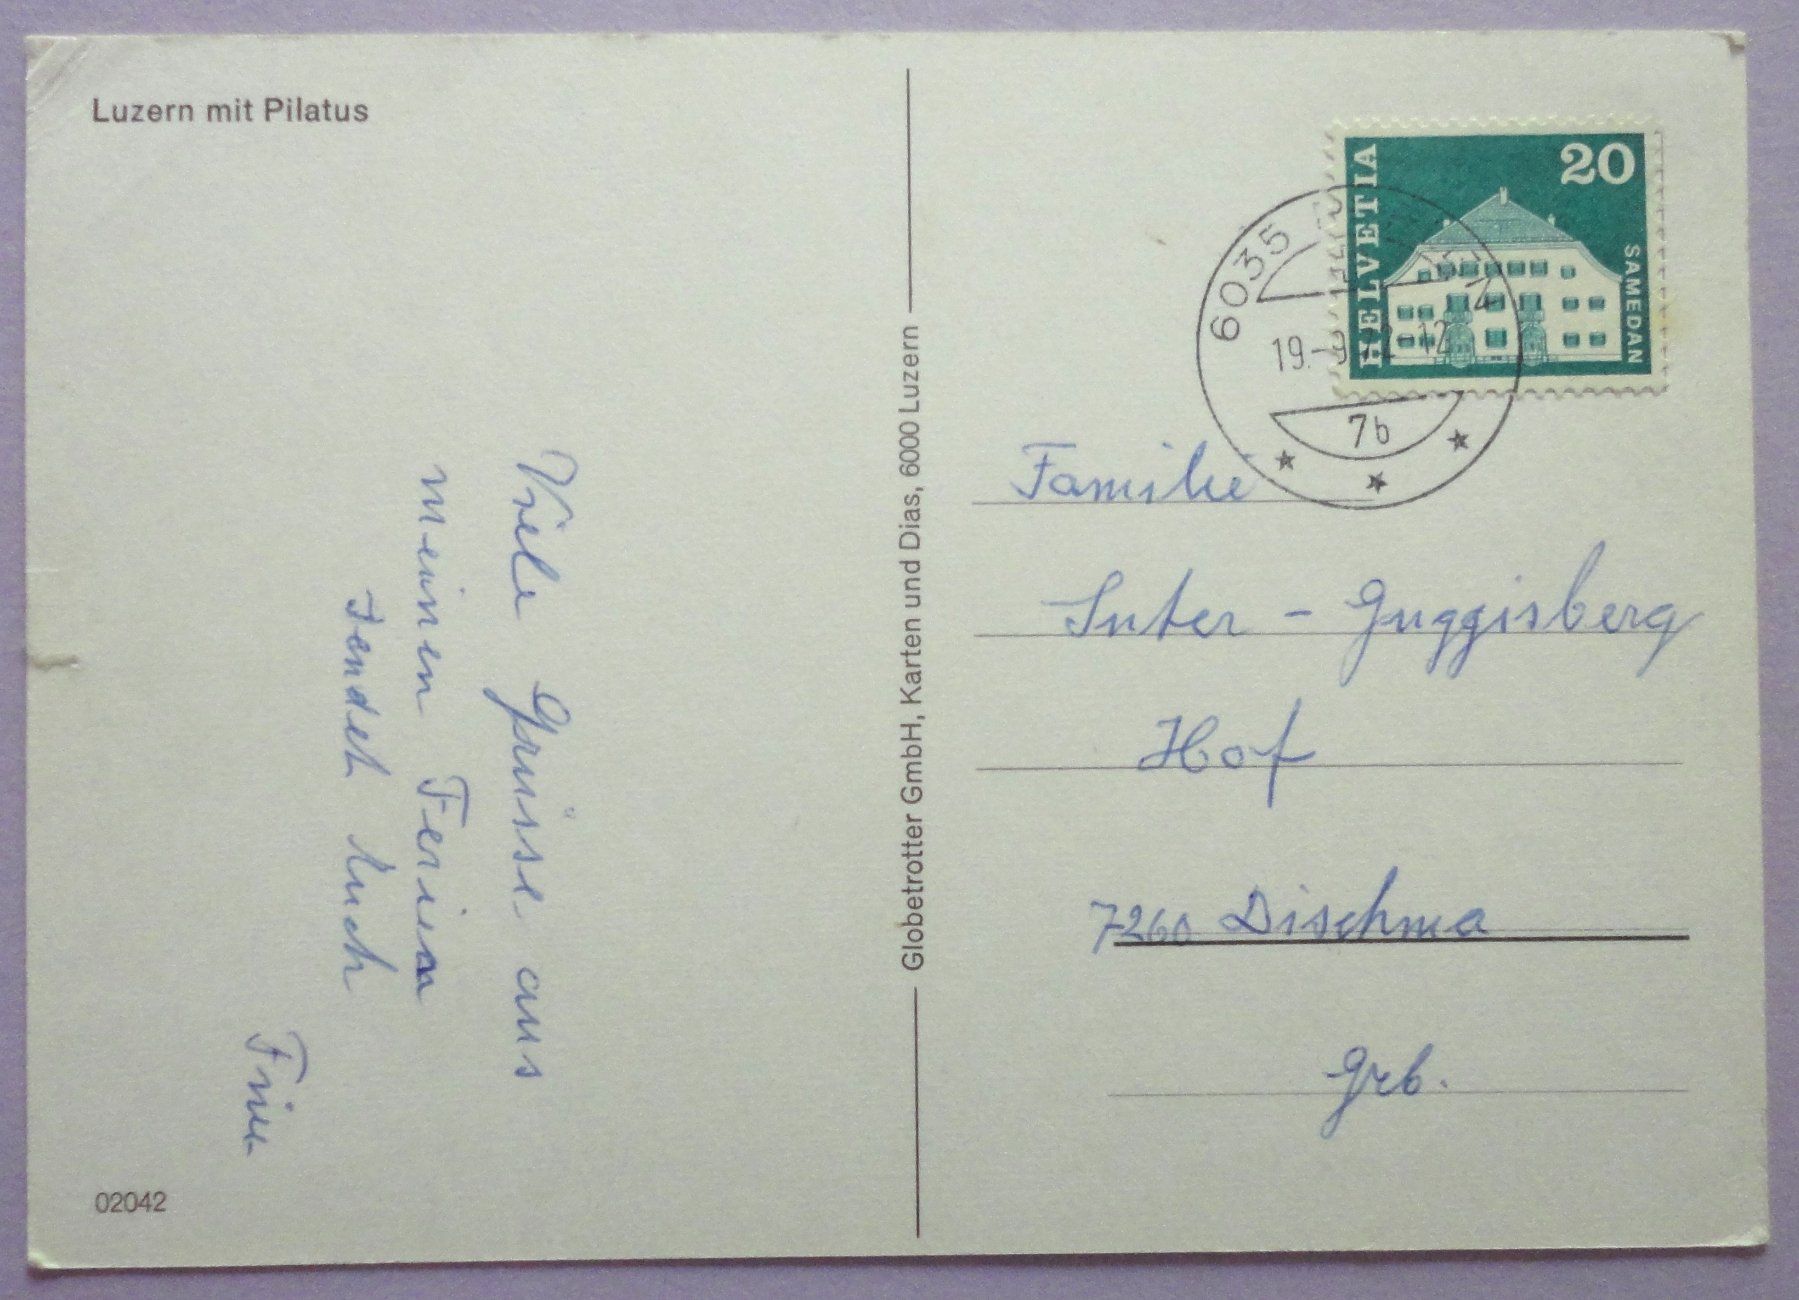 Luzern mit Pilatus
Viele Grüsse aus
meinen Ferien
sendet Euch
02042
Globetrotter GmbH, Karten und Dias, 6000 Luzern
HELVETIA
20
SAMEDAN
6035
19.-9
12
7b
Familie
Suter - Guggisberg
Hof
7260 Dischma
Grb.